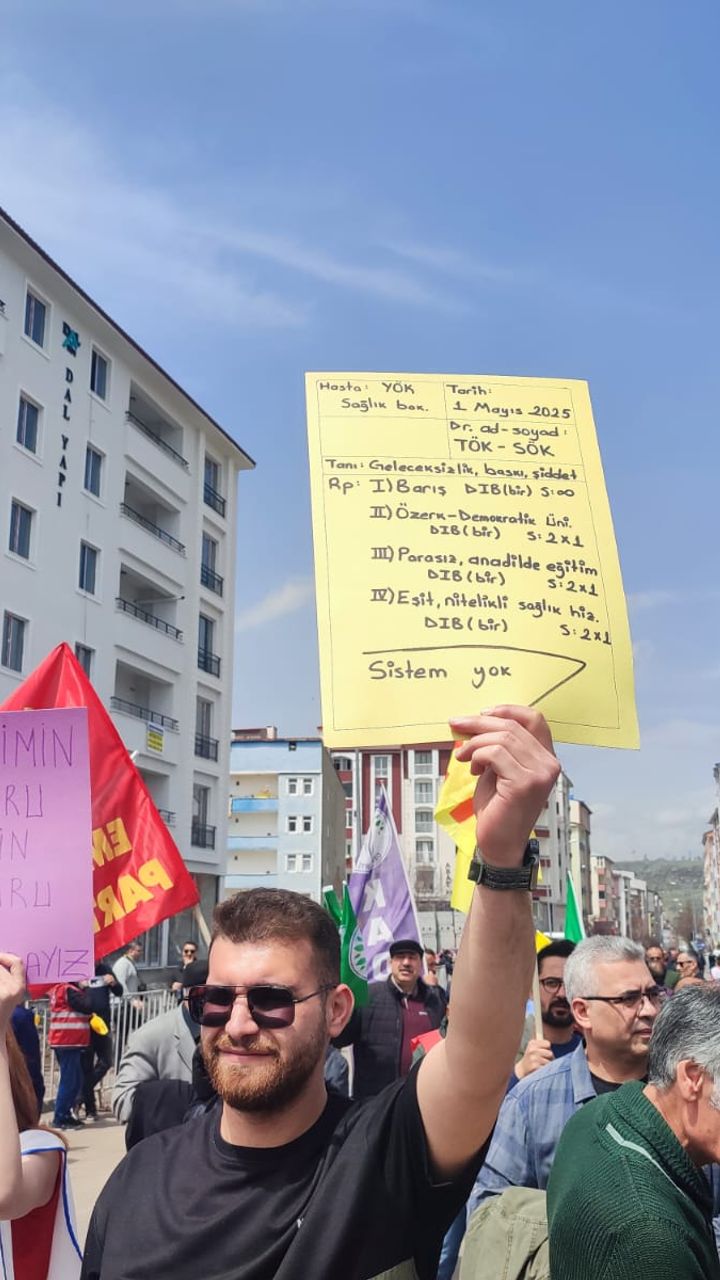 DAL YAPI
Hasta: YÖK
Sağlık bak.
Tarih:
1 Mayıs 2025
Dr. ad-soyad:
TÖK-SÖK
Tanı: Geleceksizlik, baskı, şiddet
Rp: I) Barış DIB(bir) S:∞
II) Özerk-Demokratik Üni.
DIB(bir) S:2x1
III) Parasız, anadilde eğitim
DIB(bir) S:2x1
IV) Eşit, nitelikli sağlık hiz.
DIB(bir) S:2x1
Sistem yok
İMİN
RU
İN
RU
AYIZ
EM
PART
KA